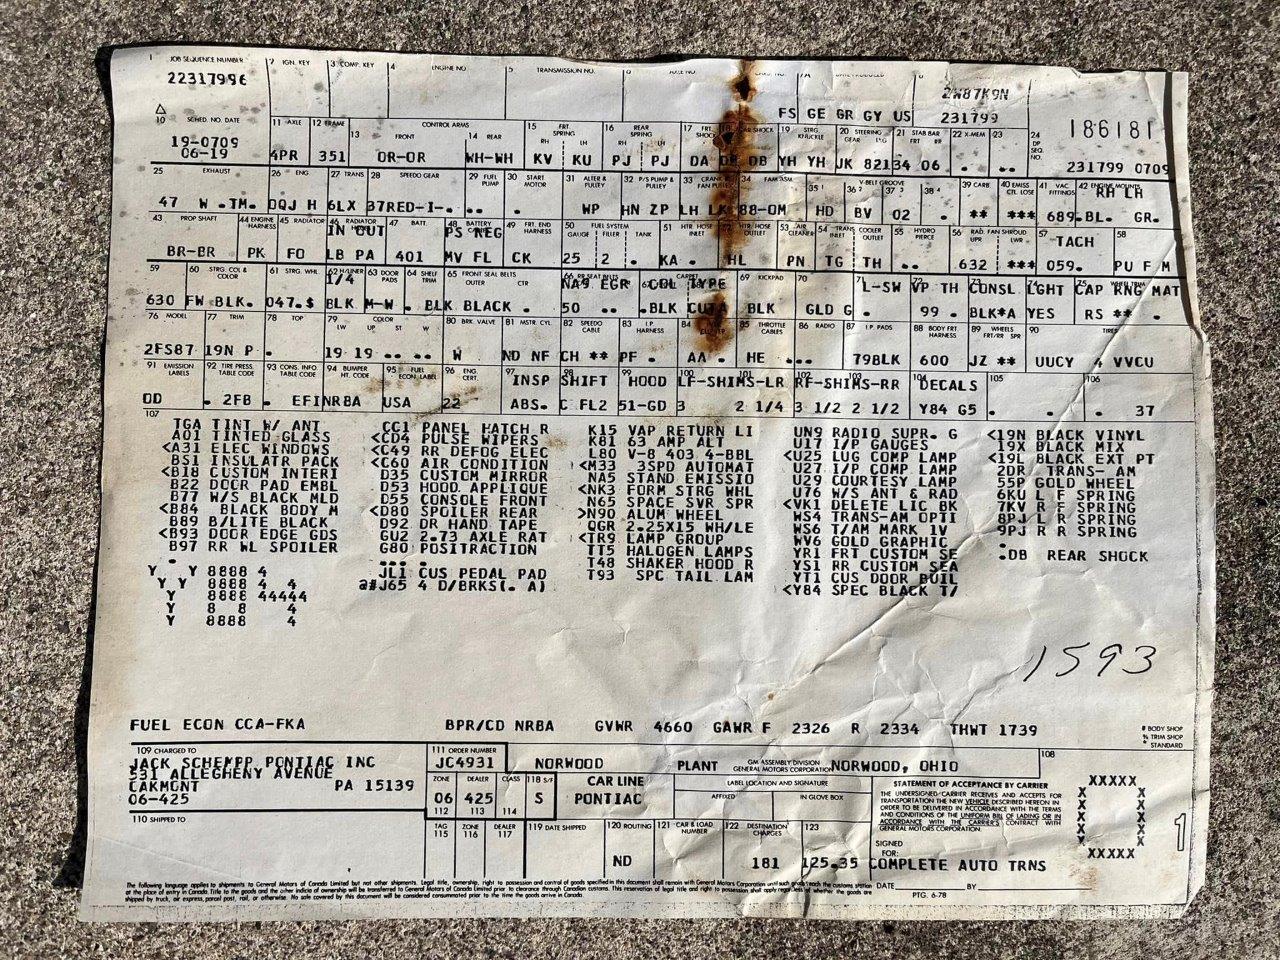 1 JOB SEQUENCE NUMBER 2 IGN. KEY 3 COMP. KEY 4 ENGINE NO 5 TRANSMISSION NO. 6 AXLE NO. 7A DATE PRODUCED 8
22317996 2W87K9N
FS GE GR GY US 231799
10 SCHED. NO. DATE 11 AXLE 12 FRAME 13 FRONT CONTROL ARMS 14 REAR 15 FRT. SPRING 16 REAR SPRING 17 FRT. SHOCK REAR SHOCK 19 STRG KNUCKLE 20 STEERING GEAR 21 STAB BAR 22 X-MEM 23 24 DP SEQ. NO. 186181
RH LH RH LH
19-0709
06-19 4PR 351 OR-OR WH-WH KV KU PJ PJ DA DB YH YH JK 82134 06 . . 231799 0709
25 EXHAUST 26 ENG 27 TRANS 28 SPEEDO GEAR 29 FUEL PUMP 30 START MOTOR 31 ALTER & PULLEY 32 P/S PUMP & PULLEY 33 CRANK & FAN PULLEY 34 FAN ASM 35 36 V-BELT GROOVE 37 38 39 CARB 40 EMISS CTL LOSE 41 VAC FITTINGS 42 ENGINE MOUNTS
RH LH
47 W .TM. DQJ H 6LX 37RED-I-. . . WP HN ZP LH 88-0M HD BV 02 . ** *** 689.BL. GR.
43 PROP SHAFT 44 ENGINE HARNESS 45 RADIATOR 46 RADIATOR HOSE 47 BATT. 48 BATTERY CABLE 49 FRT. END HARNESS 50 GAUGE FUEL SYSTEM FILTER TANK 51 HTR HOSE INLET 52 HTR HOSE OUTLET 53 AIR CLEANER 54 TRANS INLET COOLER OUTLET 55 HYDRO PIERCE 56 RAD. FAN SHROUD UPR LWR 57 58
IN OUT PS NEG TACH
BR-BR PK FO LB PA 401 MV FL CK 25 2 . KA . HL PN TG TH .. 632 *** 059. PU F M
59 60 STRG. COL & COLOR 61 STRG. WHL 62 H/LINER 63 DOOR PADS 64 SHELF TRIM 65 FRONT SEAL BELTS OUTER CTR 66 RR SEAT BELTS CARPET 69 KICKPAD 70
1/4 NA9 EGR COL TYPE L-SW VP TH CONSL LGHT CAP RNG MAT
630 FW BLK. 047.$ BLK M-W . BLK BLACK . 50 .. .BLK CUTA BLK GLD G . 99 . BLK*A YES RS ** .
76 MODEL 77 TRIM 78 TOP 79 LW COLOR UP ST W 80 BRK. VALV 81 MSTR. CYL. 82 SPEEDO CABLE 83 I.P HARNESS 84 85 THROTTLE CABLES 86 RADIO 87 I.P. PADS 88 BODY FRT HARNESS 89 WHEELS FRT/RR SPR 90 TIRES
2FS87 19N P . 19 19 .. .. W ND NF CH ** PF . AA . HE ... 79BLK 600 JZ ** UUCY 4 VVCU
91 EMISSION LABELS 92 TIRE PRESS TABLE CODE 93 CONS. INFO TABLE CODE 94 BUMPER HT. CODE 95 FUEL ECON LABEL 96 ENG CERT. 97 INSP 98 SHIFT 99 HOOD 100 LF-SHIMS-LR 101 102 RF-SHIMS-RR 103 104 DECALS 105 106
OD . 2FB . EFINRBA USA 22 ABS. C FL2 51-GD 3 2 1/4 3 1/2 2 1/2 Y84 G5 . . . 37
107
TGA TINT W/ ANT CC1 PANEL HATCH R K15 VAP RETURN LI UN9 RADIO SUPR. G <19N BLACK VINYL
A01 TINTED GLASS <CD4 PULSE WIPERS K81 63 AMP ALT U17 I/P GAUGES <19X BLACK MIX
<A31 ELEC WINDOWS <C49 RR DEFOG ELEC L80 V-8 403 4-BBL <U25 LUG COMP LAMP <19L BLACK EXT PT
BS1 INSULATR PACK <C60 AIR CONDITION <M33 3SPD AUTOMAT U27 I/P COMP LAMP 2DR TRANS- AM
<B18 CUSTOM INTERI D35 CUSTOM MIRROR NA5 STAND EMISSIO U29 COURTESY LAMP 55P GOLD WHEEL
B22 DOOR PAD EMBL D53 HOOD APPLIQUE <NK3 FORM STRG WHL U76 W/S ANT & RAD 6KU L F SPRING
B77 W/S BLACK MLD D55 CONSOLE FRONT N65 SPACE SVR SPR <VK1 DELETE LIC BK 7KV R F SPRING
<B84 BLACK BODY M <D80 SPOILER REAR >N90 ALUM WHEEL WS4 TRANS-AM OPTI 8PJ L R SPRING
B89 B/LITE BLACK D92 DR HAND TAPE QGR 2.25X15 WH/LE WS6 T/AM MARK 1V 9PJ R R SPRING
<B93 DOOR EDGE GDS GU2 2.73 AXLE RAT <TR9 LAMP GROUP WV6 GOLD GRAPHIC .
B97 RR WL SPOILER G80 POSITRACTION TT5 HALOGEN LAMPS YR1 FRT CUSTOM SE .DB REAR SHOCK
. ... . T48 SHAKER HOOD R YS1 RR CUSTOM SEA
Y Y 8888 4 JL1 CUS PEDAL PAD T93 SPC TAIL LAM YT1 CUS DOOR BUIL
Y Y 8888 4 4 a#J65 4 D/BRKS(. A) <Y84 SPEC BLACK T/
Y 8888 44444
Y 8 8 4
Y 8888 4
1593
FUEL ECON CCA-FKA BPR/CD NRBA GVWR 4660 GAWR F 2326 R 2334 THWT 1739
# BODY SHOP
% TRIM SHOP
* STANDARD
109 CHARGED TO 111 ORDER NUMBER 108
JACK SCHEMPP PONTIAC INC JC4931 NORWOOD PLANT GM ASSEMBLY DIVISION GENERAL MOTORS CORPORATION NORWOOD, OHIO
531 ALLEGHENY AVENUE
OAKMONT PA 15139
06-425
ZONE DEALER CLASS 118 S/F CAR LINE LABEL LOCATION AND SIGNATURE
06 425 S PONTIAC AFFIXED IN GLOVE BOX
112 113 114
STATEMENT OF ACCEPTANCE BY CARRIER
THE UNDERSIGNED CARRIER RECEIVES AND ACCEPTS FOR
TRANSPORTATION THE NEW VEHICLE DESCRIBED HEREON IN
ORDER TO BE DELIVERED IN ACCORDANCE WITH THE TERMS
AND CONDITIONS OF THE UNIFORM BILL OF LADING OR IN
ACCORDANCE WITH THE CARRIER'S CONTRACT WITH
GENERAL MOTORS CORPORATION.
SIGNED
FOR:
COMPLETE AUTO TRNS
DATE BY
PTG. 6-78
XXXXX
X X
X X
X X
X X
X X
XXXXX
1
110 SHIPPED TO TAG 115 ZONE 116 DEALER 117 119 DATE SHIPPED 120 ROUTING 121 CAR & LOAD NUMBER 122 DESTINATION CHARGES 123
ND 181 125.35
The following language applies to shipments to General Motors of Canada Limited but not other shipments. Legal title, ownership, right to possession and control of goods specified in this document shall remain with General Motors Corporation until such goods reach the customs station
at the place of entry in Canada. Title to the goods and the other indicia of ownership will be transferred to General Motors of Canada Limited prior to clearance through Canadian customs. This reservation of legal title and right to possession shall apply regardless of whether the goods are
shipped by truck, air express, parcel post, rail, or otherwise. No sale covered by this document will be considered consummated prior to the time the goods arrive in Canada.